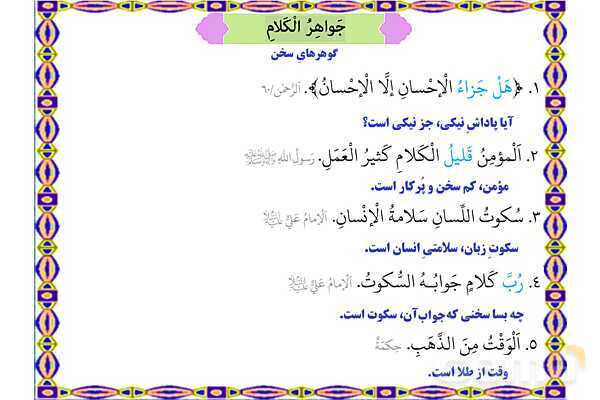 جَواهِرُ الْكَلامِ
گوهرهای سخن
۱. ﴿هَلْ جَزاءُ الْإحْسانِ إلَّا الْإحْسانُ﴾. اَلرَّحْمٰن/۶۰
آیا پاداشِ نیکی، جز نیکی است؟
۲. اَلْمؤمِنُ قَليلُ الْكَلامِ كَثيرُ الْعَمَلِ. رَسولُ اللهِ ﷺ
مؤمن، کم سخن و پُرکار است.
۳. سُكوتُ اللِّسانِ سَلامةُ الْإنْسانِ. اَلْإمامُ عَليٌّ
سکوتِ زبان، سلامتیِ انسان است.
۴. رُبَّ كَلامٍ جَوابُـهُ السُّكوتُ. اَلْإمامُ عَليٌّ
چه بسا سخنی که جوابِ آن، سکوت است.
۵. اَلْوَقْتُ مِنَ الذَّهَبِ. حِكمَةٌ
وقت از طلا است.